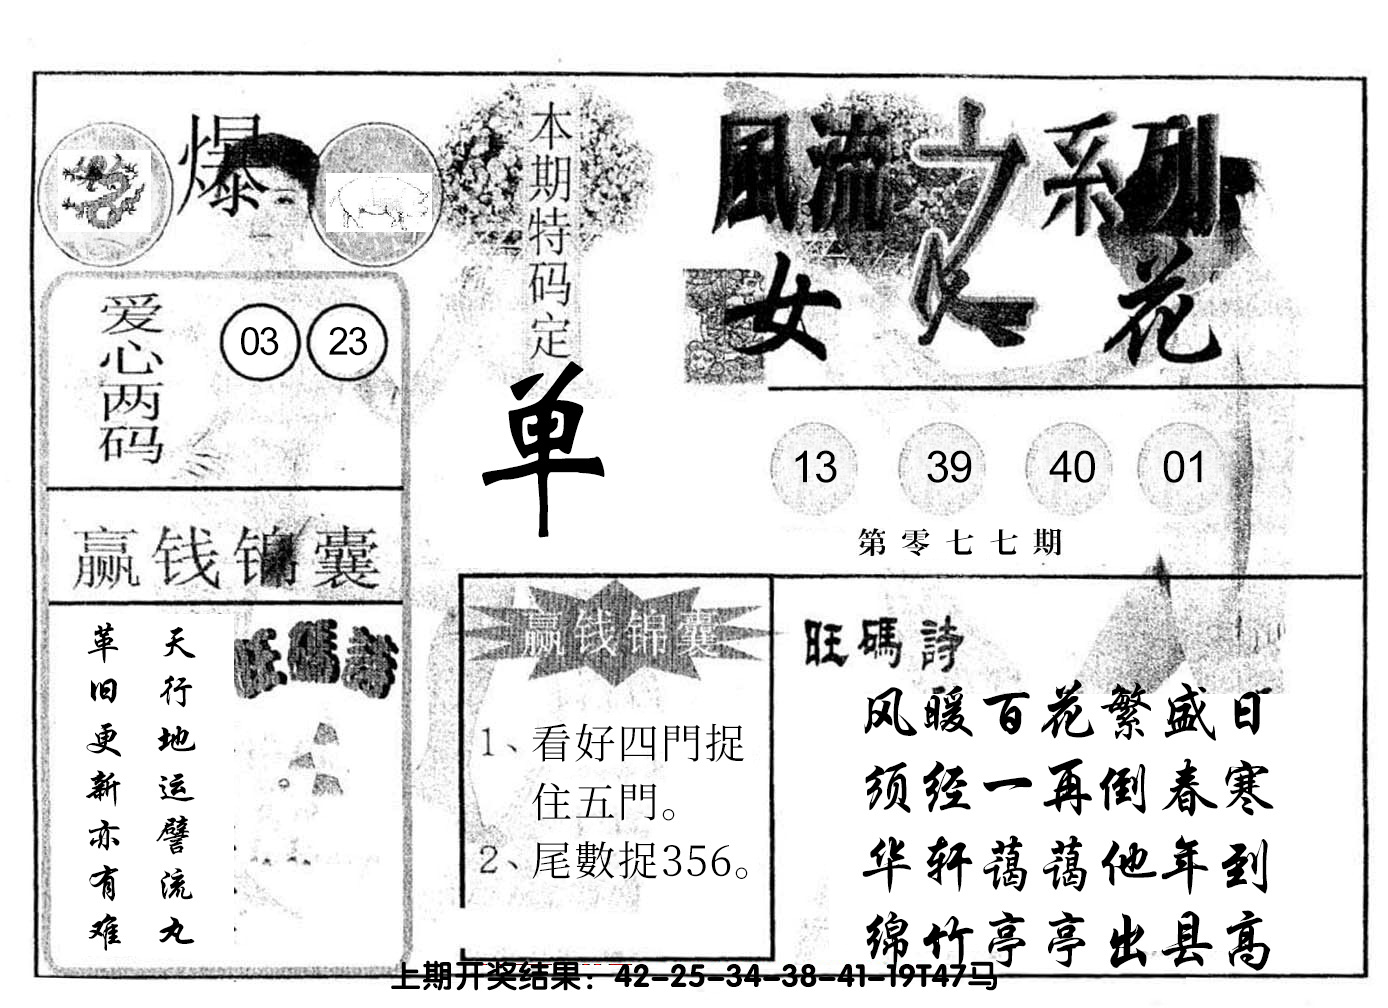 爆
爱心两码
03 23
赢钱锦囊
天行地运譬流丸
革旧更新亦有难
旺碼詩
本期特码定
单
風流之系列
女人花
13 39 40 01
第零七七期
赢钱锦囊
1、看好四門捉
住五門。
2、尾數捉356。
旺碼詩
风暖百花繁盛日
须经一再倒春寒
华轩蔼蔼他年到
绵竹亭亭出县高
上期开奖结果：42-25-34-38-41-19T47马